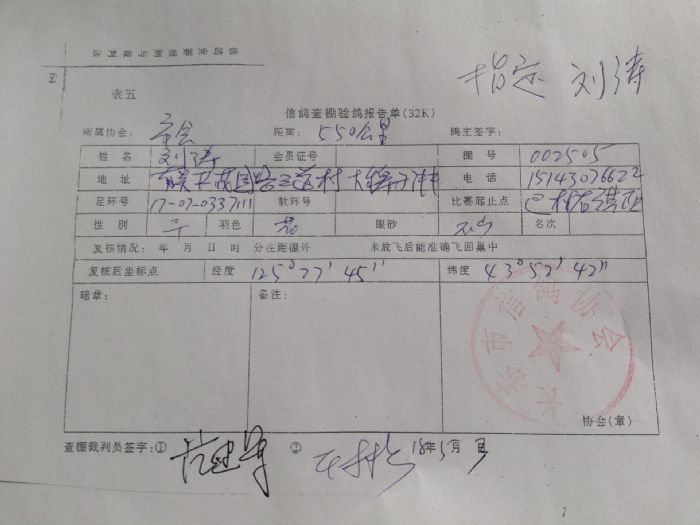 信鸽竞赛规则与裁判法
64
指定 刘涛
表五
信鸽查棚验鸽报告单(32K)
所属协会: 市会 距离: 550公里 鸽主签字:
姓名 刘涛 会员证号 棚号 002505
地址 村 电话 15143076622
足环号 17-07-0337111 软环号 比赛起止点
性别 羽色 花 眼砂 名次
复核情况: 年 月 日 时 分在距棚外 米放飞后能准确飞回巢中
复核后坐标点 经度 125°27′45″ 纬度 43°52′42″
暗章: 备注:
长春市信鸽协会
协会(章)
查棚裁判员签字:① ② 18年5月 日